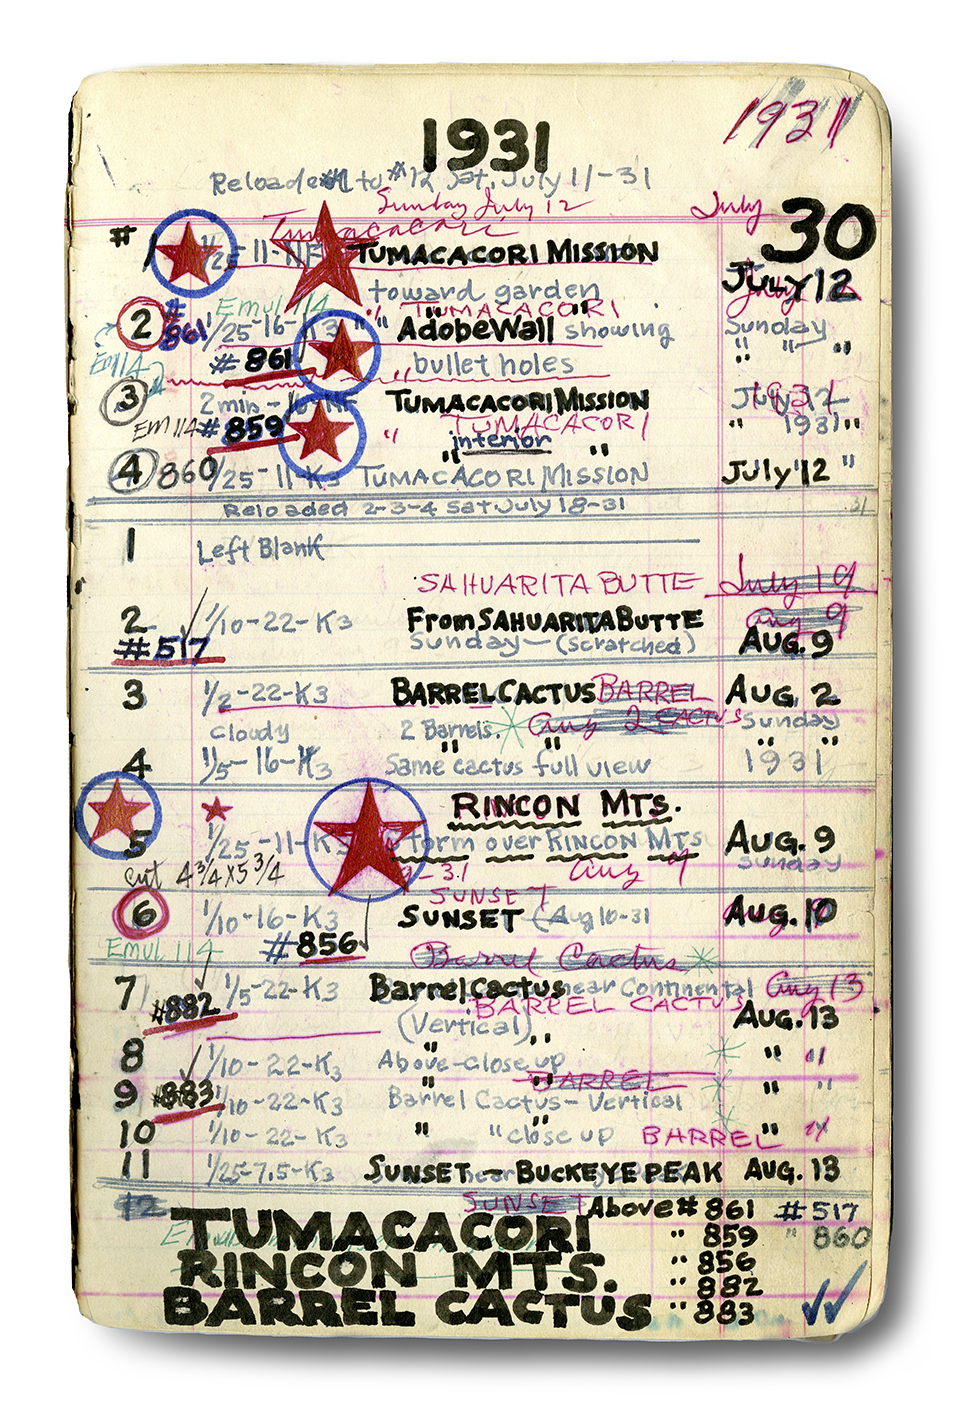 1931
1931
Reloaded #1 to #12 Sat, July 11-31
Sunday July 12
July
30
Tumacacori
# 1 1/25-11-NF TUMACACORI MISSION
JULY 12
toward garden
Emul 114 " TUMACACORI
2 #861 1/25-16-K3 " " Adobe Wall showing Sunday
#861 " bullet holes " " "
Em 114
3 2 min-16-NF TUMACACORI MISSION July 12
Em 114 #859 " TUMACACORI " 1931 "
interior
" "
4 860 1/25-11-K3 TUMACACORI MISSION July 12 "
Reloaded 2-3-4 Sat July 18-31
31
1 Left Blank
SAHUARITA BUTTE July 19
Aug 9
2 1/10-22-K3 From SAHUARITA BUTTE
#517 Sunday-(Scratched) AUG. 9
3 1/2-22-K3 BARREL CACTUS BARREL AUG. 2
cloudy 2 Barrels. Aug 2 CACTUS Sunday
" " " "
4 1/5-16-K3 Same cactus full view 1931
RINCON MTS.
5 1/25-11-K3 Storm over RINCON MTS AUG. 9
Sunday
cut 4 3/4 X 5 3/4 9-31 Aug 9
SUNSET
6 1/10-16-K3 SUNSET (Aug 10-31 AUG. 10
Emul 114 #856 Barrel Cactus
7 1/5-22-K3 Barrel Cactus near Continental Aug 13
#882 BARREL CACTUS
(Vertical) AUG. 13
" "
8 1/10-22-K3 Above-close up " "
" " BARREL
9 #883 1/10-22-K3 Barrel Cactus-Vertical " "
10 1/10-22-K3 " " close up BARREL " "
11 1/25-7.5-K3 SUNSET-BUCKEYE PEAK AUG. 13
12 SUNSET Above #861 #517
TUMACACORI " 859 " 860
RINCON MTS. " 856
" 882
BARREL CACTUS " 883